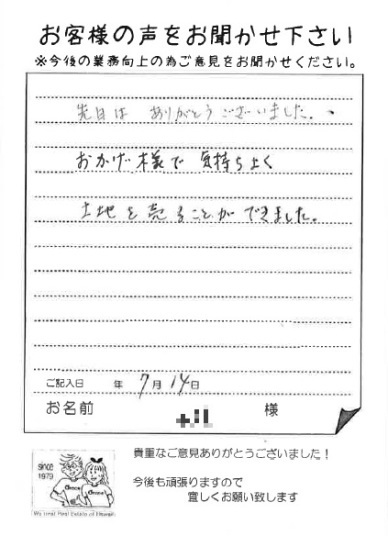 お客様の声をお聞かせ下さい
※今後の業務向上の為ご意見をお聞かせください。
先日は ありがとうございました。
おかげ様で 気持ちよく
土地を売ることができました。
ご記入日 年 7月 14日
お名前 様
貴重なご意見ありがとうございました！
since
1979
今後も頑張りますので
宜しくお願い致します